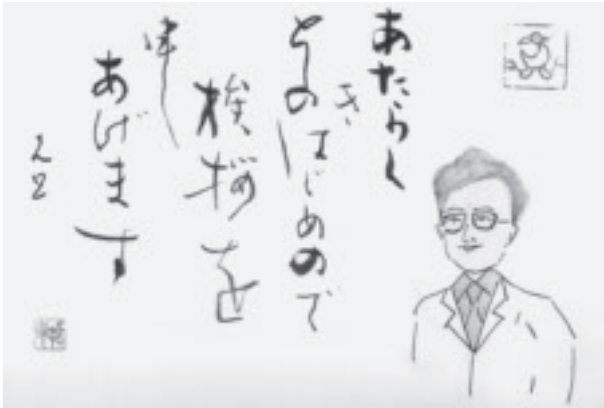 あたらし
き
としのはじめので
挨拶を
申し
あげます